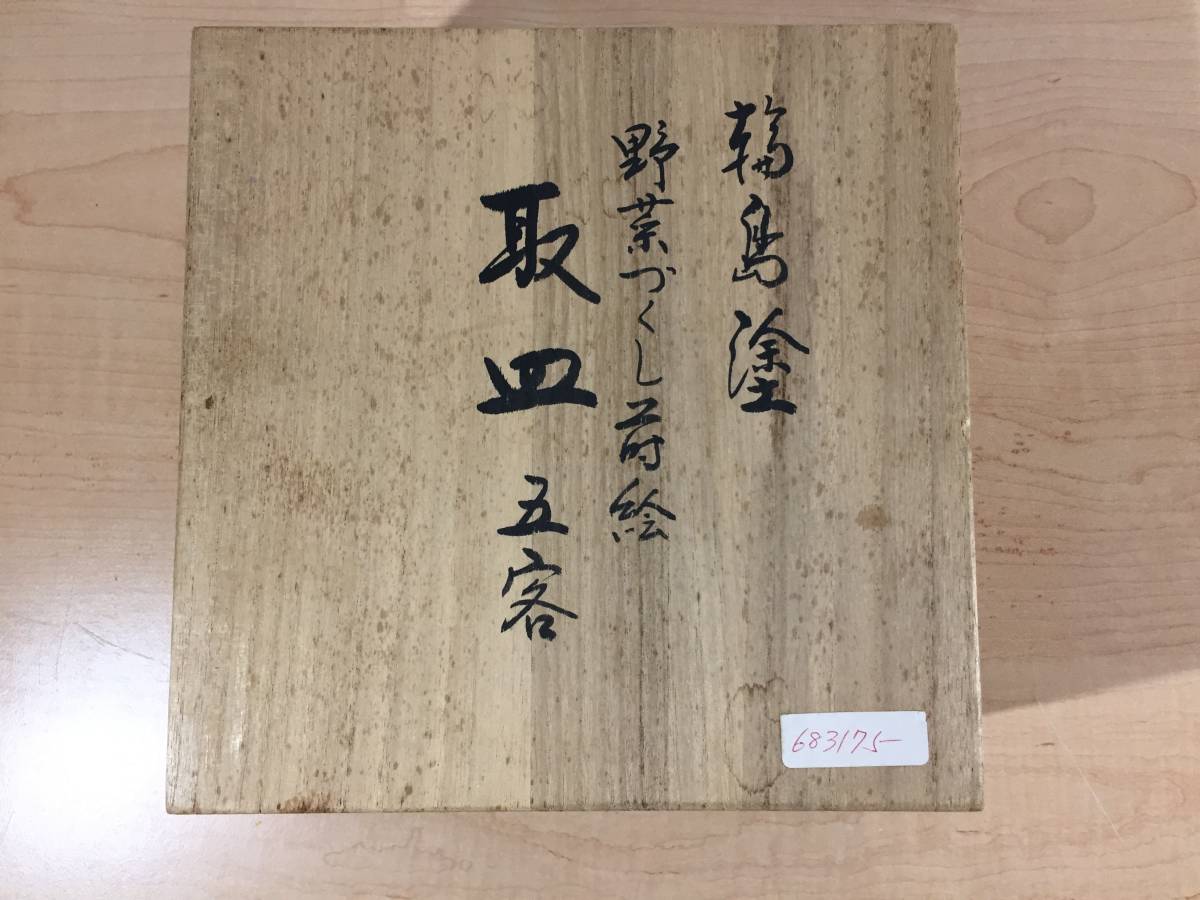 輪島塗
野菜づくし蒔絵
取皿 五客
683175-